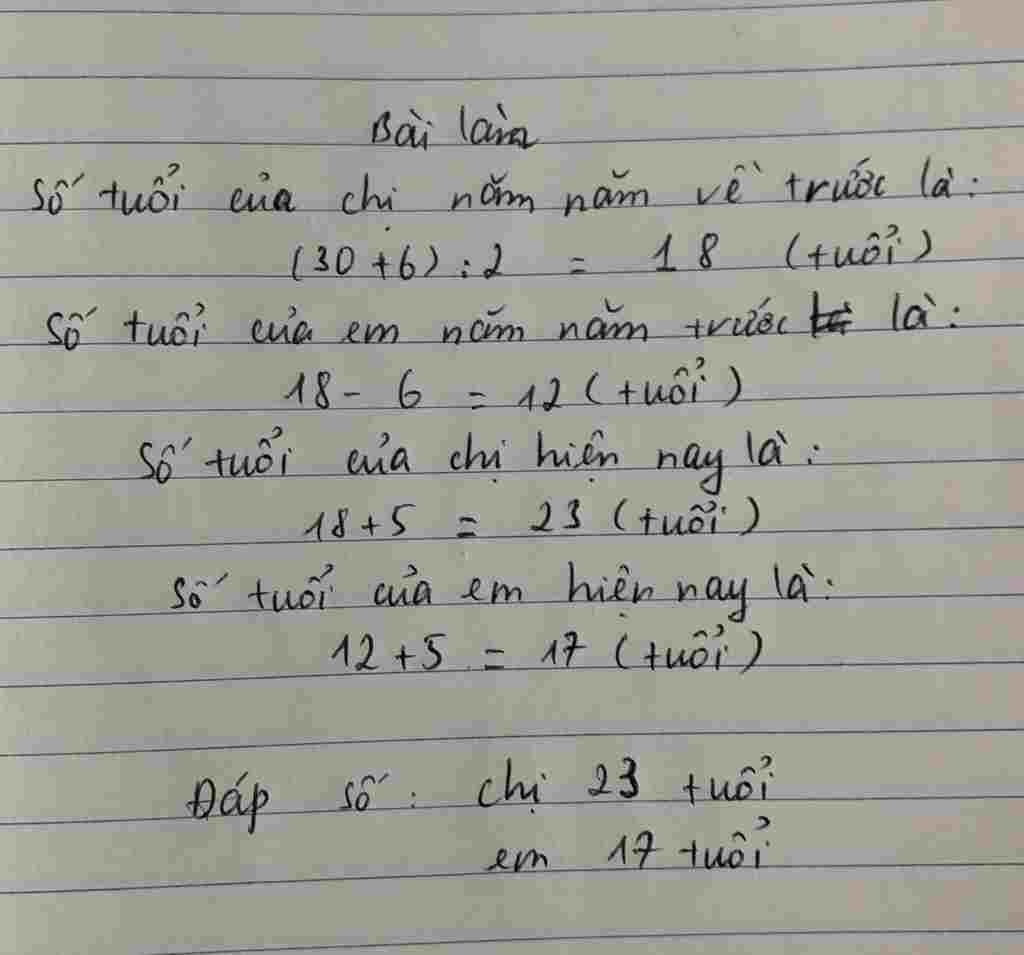 Bài làm
Số tuổi của chị năm năm về trước là:
(30 + 6) : 2 = 18 (tuổi)
Số tuổi của em năm năm trước là:
18 - 6 = 12 (tuổi)
Số tuổi của chị hiện nay là:
18 + 5 = 23 (tuổi)
Số tuổi của em hiện nay là:
12 + 5 = 17 (tuổi)
Đáp số: chị 23 tuổi
em 17 tuổi